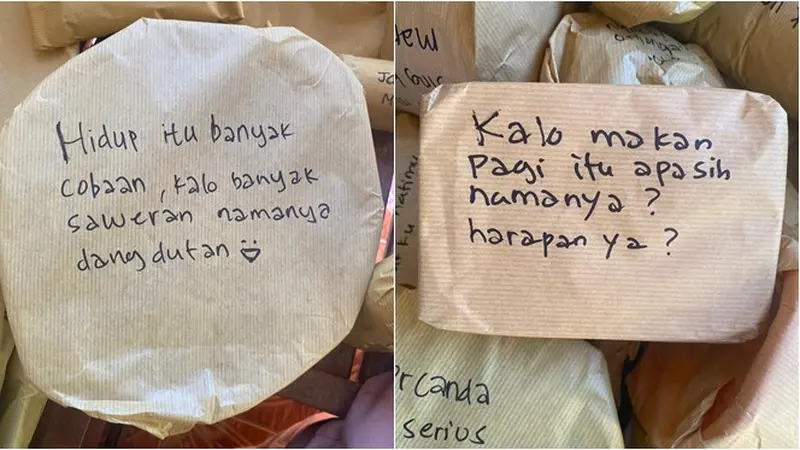 Hidup itu banyak
cobaan, kalo banyak
saweran namanya
dangdutan
Kalo makan
pagi itu apasih
namanya?
harapan ya?
rcanda
serius